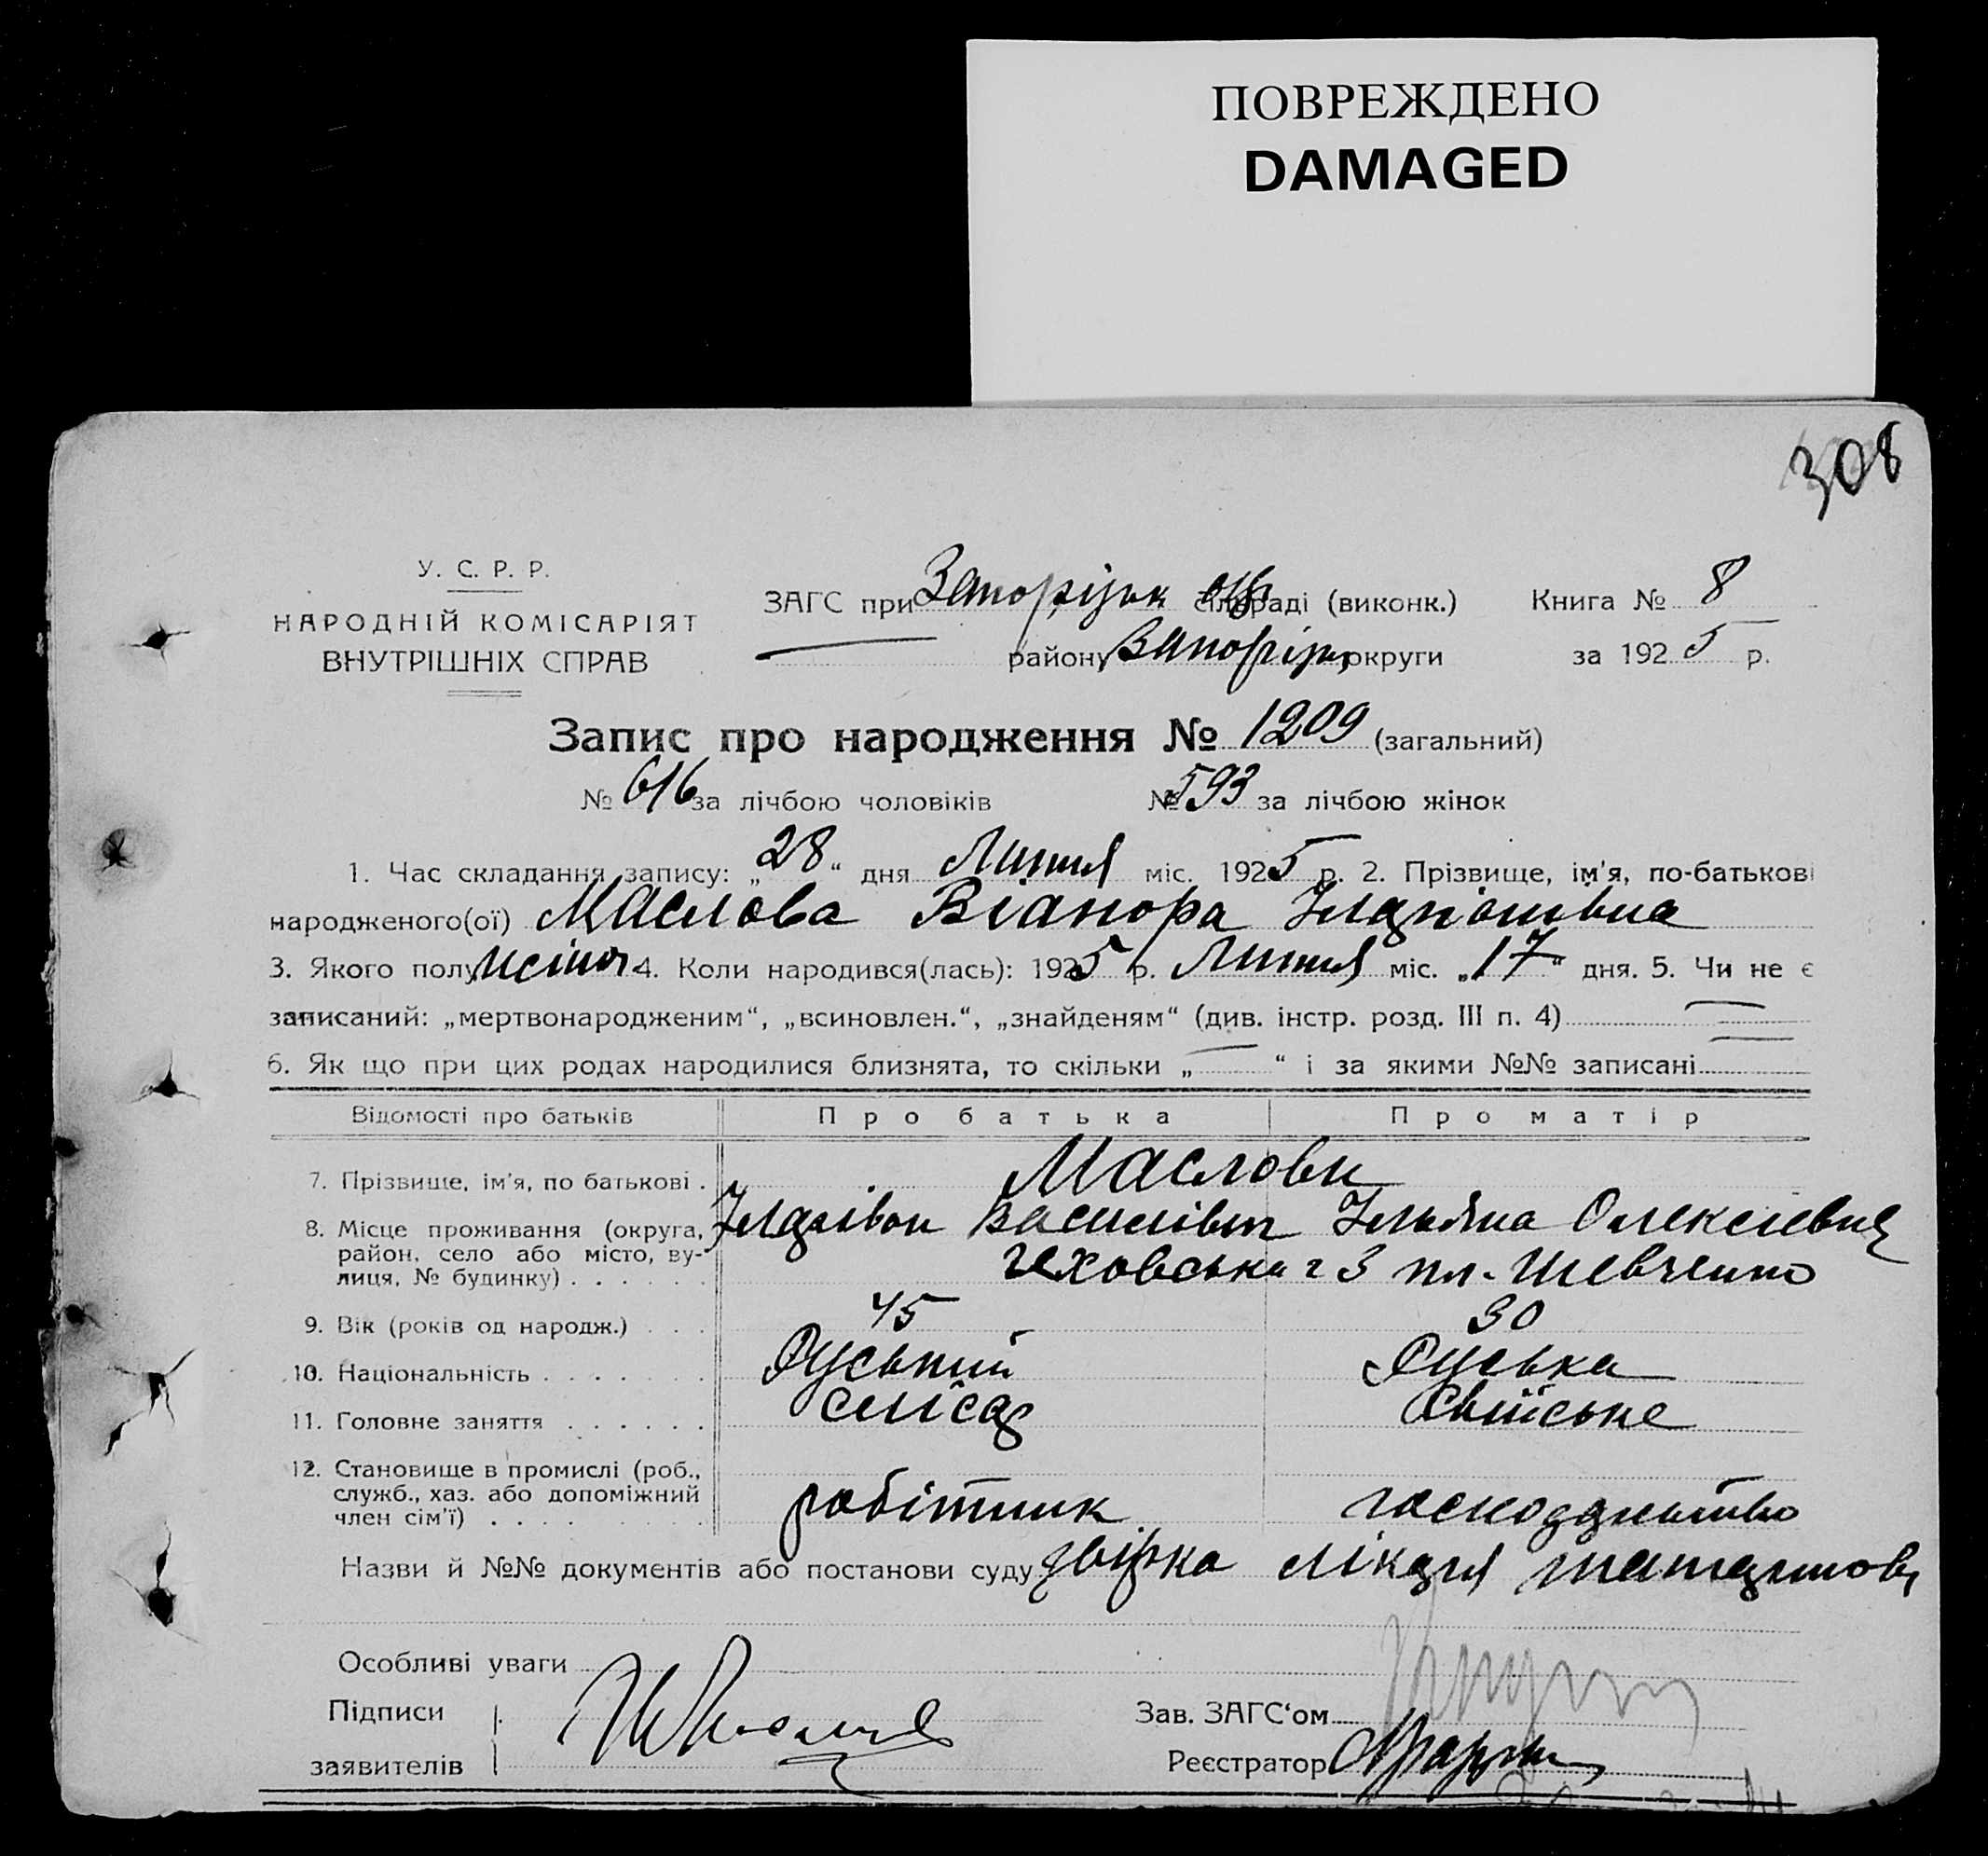 ПОВРЕЖДЕНО
DAMAGED
308
У. С. Р. Р.
НАРОДНІЙ КОМІСАРІЯТ
ВНУТРІШНІХ СПРАВ
ЗАГС при Запорізьк окр сільраді (виконк.) Книга № 8
району Запорізьк округи за 1925 р.
Запис про народження № 1209 (загальний)
№ 616 за лічбою чоловіків № 593 за лічбою жінок
1. Час складання запису: „28“ дня Липня міс. 1925 р. 2. Прізвище, ім'я, по-батькові
народженого(ої) Маслова Віанора
3. Якого полу жіноч 4. Коли народився(лась): 1925 р. Липня міс. „17“ дня. 5. Чи не є
записаний: „мертвонародженим“, „всиновлен.“, „знайденям“ (див. інстр. розд. III п. 4)
6. Як що при цих родах народилися близнята, то скільки „ “ і за якими №№ записані
Відомості про батьків Про батька Про матір
7. Прізвище, ім'я, по батькові . Маслови
8. Місце проживання (округа, Василівич Олексієвна
район, село або місто, ву- чеховська 23 пл. Шевченко
лиця, № будинку) . . . . . .
9. Вік (років од народж.) . . . 45 30
10. Національність . . . . . . . Руський Руська
11. Головне заняття . . . . . . слісар Свійське
12. Становище в промислі (роб.,
служб., хаз. або допоміжний робітник господарьство
член сім'ї) . . . . . . . .
Назви й №№ документів або постанови суду довірка лікаря
Особливі уваги
Підписи
Зав. ЗАГС‘ом
заявителів
Реєстратор